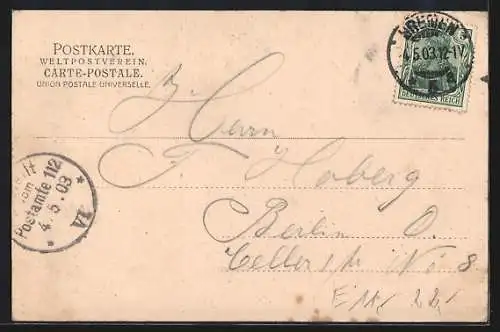 POSTKARTE.
WELTPOSTVEREIN.
CARTE-POSTALE.
UNION POSTALE UNIVERSELLE.
BREMEN
5.03.12-1V
DEUTSCHES REICH
Herrn
F. Hoberg
Berlin O.
No 8
vom
Postamte 112
4.5.03
VI